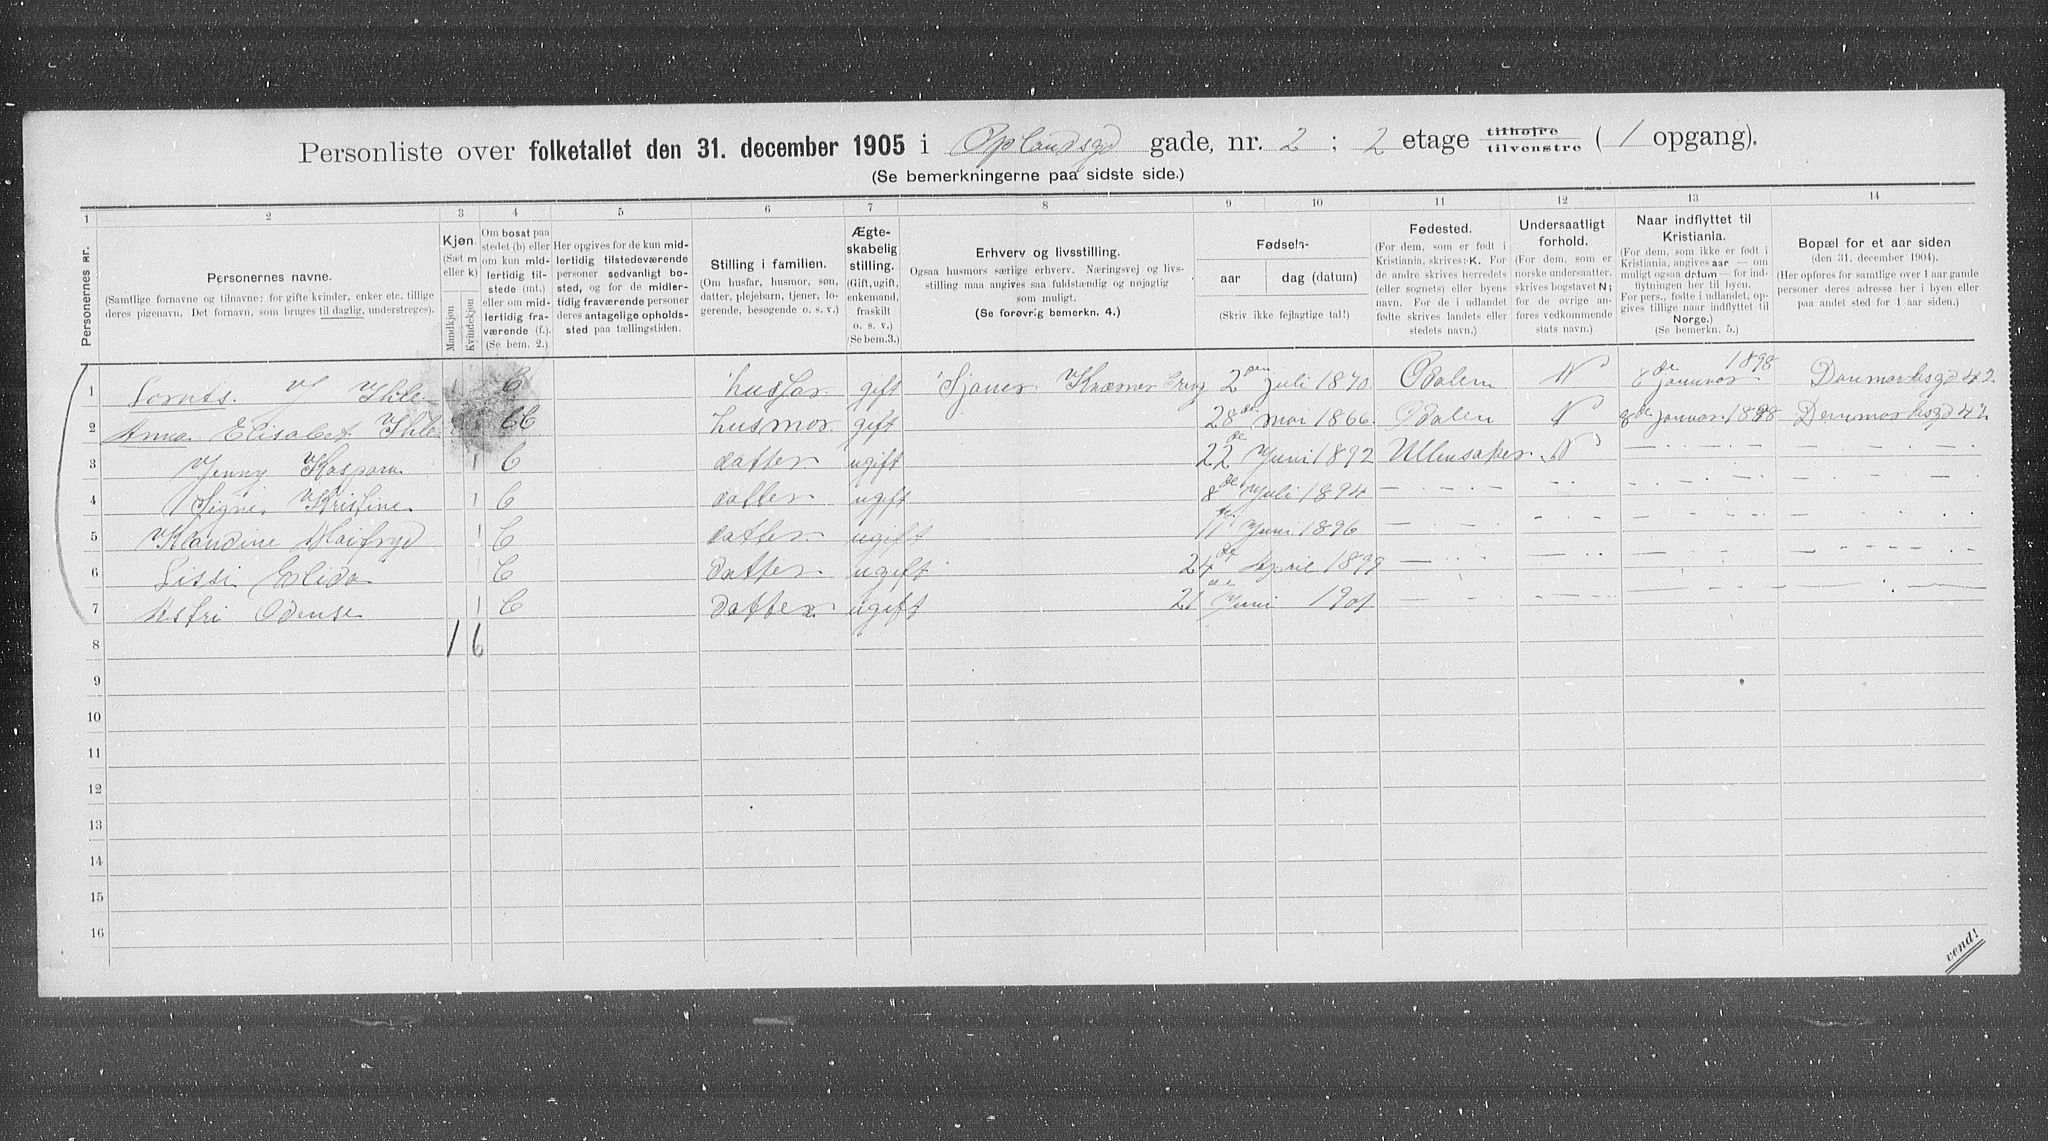 Personliste over folketallet den 31. december 1905 i Oplandsgd gade, nr. 2 ; 2 etage tilhøjre tilvenstre ( 1 opgang).
(Se bemerkningerne paa sidste side.)
1 2 3 4 5 6 7 8 9 10 11 12 13 14
Personernes nr.
Personernes navne.
(Samtlige fornavne og tilnavne; for gifte kvinder, enker etc. tillige deres pigenavn. Det fornavn, som bruges til daglig, understreges).
Kjøn.
(Sæt m eller k)
Mandkjøn
Kvindekjøn
Om bosat paa stedet (b) eller om kun midlertidig tilstede (mt.) eller om midlertidig fraværende (f.).
(Se bem. 2.)
Her opgives for de kun midlertidig tilstedeværende personer sedvanligt bosted, og for de midlertidig fraværende personer deres antagelige opholdssted paa tællingstiden.
Stilling i familien.
(Om husfar, husmor, søn, datter, plejebarn, tjener, logerende, besøgende o. s. v.)
Ægteskabelig stilling.
(Gift, ugift, enkemand, fraskilt o. s. v.)
(Se bem.3.)
Erhverv og livsstilling.
Ogsaa husmors særlige erhverv. Næringsvej og livsstilling maa angives saa fuldstændig og nøjagtig som muligt.
(Se forøvrig bemerkn. 4.)
Fødsels-
aar dag (datum)
(Skriv ikke fejlagtige tal!)
Fødested.
(For dem, som er født i Kristiania, skrives: K. For de andre skrives herredets (eller sognets) eller byens navn. For de i udlandet fødte skrives landets eller stedets navn.)
Undersaatligt forhold.
(For dem, som er norske undersaatter, skrives bogstavet N; for de øvrige anføres vedkommende stats navn.)
Naar indflyttet til Kristiania.
(For dem, som ikke er født i Kristiania, angives aar — om muligt ogsaa datum — for indflytningen her til byen. For pers., fødte i udlandet, opgives tillige naar indflyttet til Norge.)
(Se bemerkn. 5.)
Bopæl for et aar siden
(den 31. december 1904).
(Her opføres for samtlige over 1 aar gamle personer deres adresse her i byen eller paa andet sted for 1 aar siden.)
1 Lornts. J Ihle 1 husfar gift Sjauer Kræmer 2 den Juli 1870 Odalen N 8 de Januar 1898 Danmarksgd 42.
2 Anna Elisabet Ihle husmor gift 28 de mai 1866 Odalen N 8 de Januar 1898 Denmarksgd 42
3 Jenny Kaspara 1 datter ugift 22 de Juni 1892 Ullensaker N
4 Signe Kristine 1 datter ugift 8 de Juli 1894
5 Klaudine 1 datter ugift 11 de Juni 1896
6 Lissi Elida 1 datter ugift 24 de April 1899
7 Asfri Odense 1 datter ugift 21 de Juni 1901
8 1 6
9
10
11
12
13
14
15
16
vend!